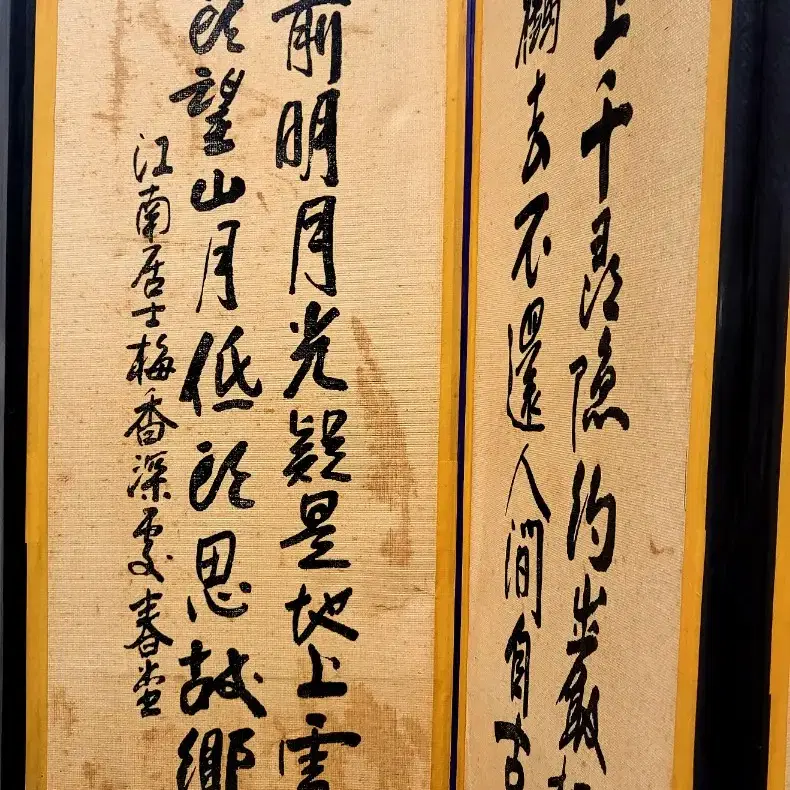 上千尋隐約出
去不還人間自古
前明月光疑是地上
頭望山月低頭思故鄉
江南居士梅香深處春堂